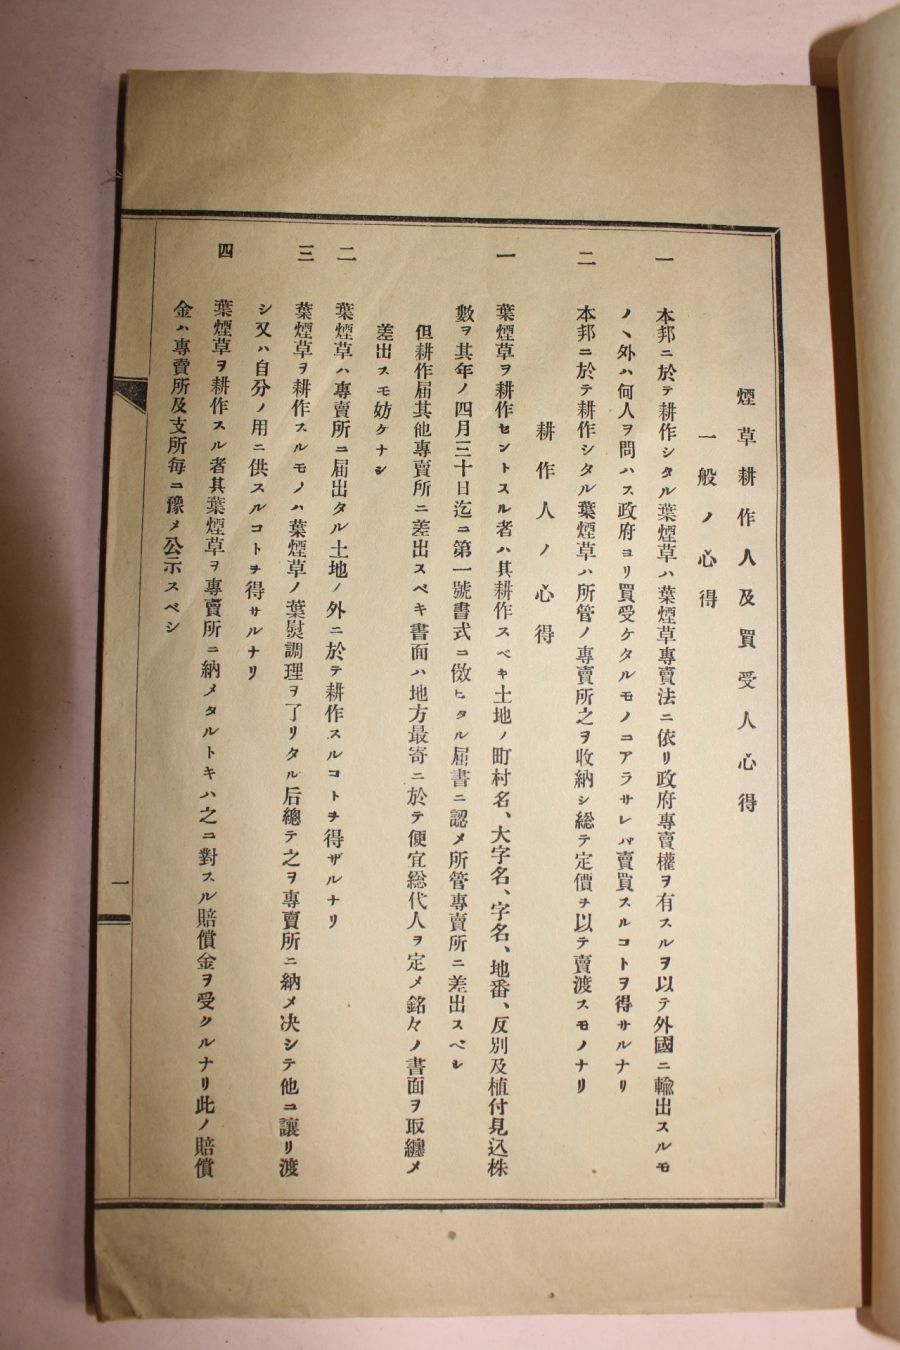 煙草耕作人及買受人心得
一般ノ心得
一 本邦ニ於テ耕作シタル葉煙草ハ葉煙草專賣法ニ依リ政府專賣權ヲ有スルヲ以テ外國ニ輸出スルモ
ノヽ外ハ何人ヲ問ハス政府ヨリ買受ケタルモノニアラサレバ賣買スルコトヲ得サルナリ
二 本邦ニ於テ耕作シタル葉煙草ハ所管ノ專賣所之ヲ收納シ総テ定價ヲ以テ賣渡スモノナリ
耕作人ノ心得
一 葉煙草ヲ耕作セントスル者ハ其耕作スベキ土地ノ町村名、大字名、字名、地番、反別及植付見込株
數ヲ其年ノ四月三十日迄ニ第一號書式ニ傚ヒタル屆書ニ認メ所管專賣所ニ差出スベシ
但耕作屆其他專賣所ニ差出スベキ書面ハ地方最寄ニ於テ便宜総代人ヲ定メ銘々ノ書面ヲ取纏メ
差出スモ妨ケナシ
二 葉煙草ハ專賣所ニ屆出タル土地ノ外ニ於テ耕作スルコトヲ得ザルナリ
三 葉煙草ヲ耕作スルモノハ葉煙草ノ葉熨調理ヲ了リタル后總テ之ヲ專賣所ニ納メ决シテ他ニ讓リ渡
シ又ハ自分ノ用ニ供スルコトヲ得サルナリ
四 葉煙草ヲ耕作スル者其葉煙草ヲ專賣所ニ納メタルトキハ之ニ對スル賠償金ヲ受クルナリ此ノ賠償
金ハ專賣所及支所每ニ豫メ公示スベシ
一